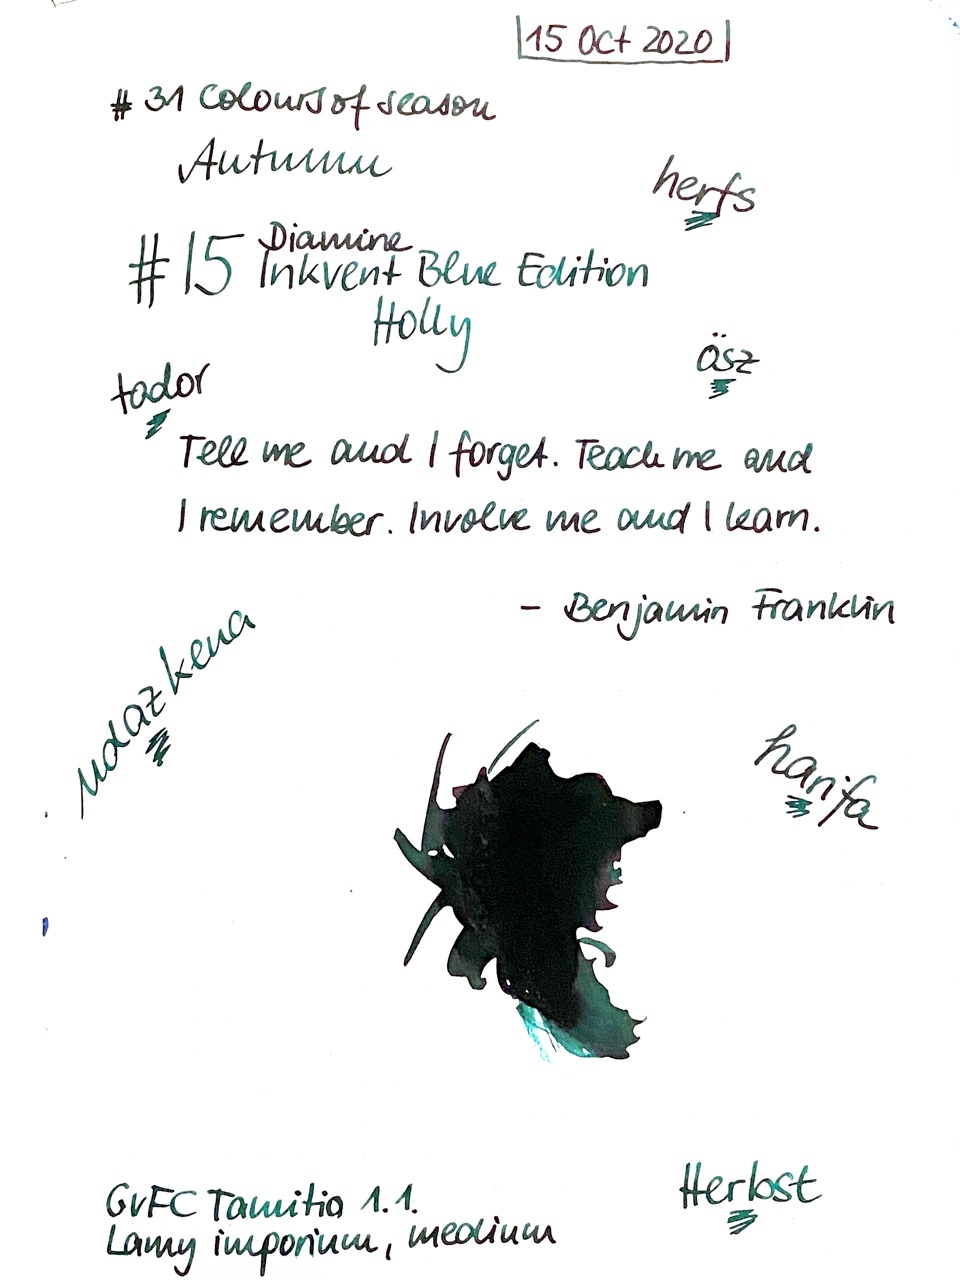 15 Oct 2020
# 31 Colours of season
Autumn
herfs
#15 Diamine
Inkvent Blue Edition
Holly
ősz
tador
Tell me and I forget. Teach me and
I remember. Involve me and I learn.
- Benjamin Franklin
udazkena
harifa
Herbst
GvFC Tamitio 1.1.
Lamy imporium, medium